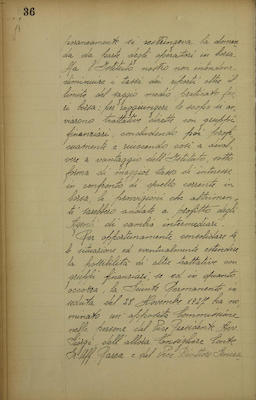 36
finanziamento si restringeva la doman
da da parte degli operatori in borsa.
Ma l'Istituto nostro non intendeva
diminuire i tassi dei riporti oltre il
limite del saggio medio praticato fuo
ri borsa: per raggiungere lo scopo si av
viarono trattative dirette con gruppi
finanziari, concludendo poi
e riuscendo così a
vere a vantaggio dell'Istituto, sotto
forma di maggior tasso di interesse
in confronto di quello corrente in
borsa, le provvigioni che altrimen
ti sarebbero andate a profitto degli
Agenti di cambio intermediari.
Per opportunamente consolidare la
situazione ed eventualmente estendere
la possibilità di altre trattative con
gruppi finanziari, se ed in quanto
occorra, la Giunta Permanente in
seduta del 28 Novembre 1927 ha no
minato un'apposita Commissione
nelle persone del Vice Presidente Avv.
dall'allora Consigliere Conte
e dal Vice Direttore